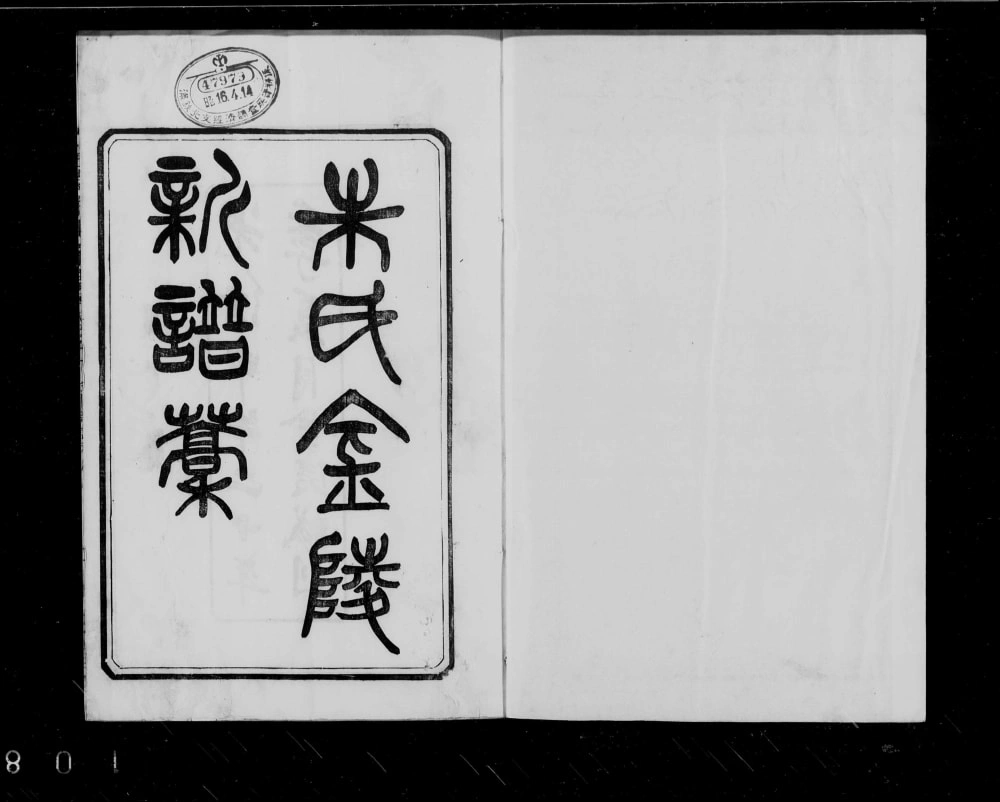 朱氏金陵
新譜藳
47973
昭16.4.14
801